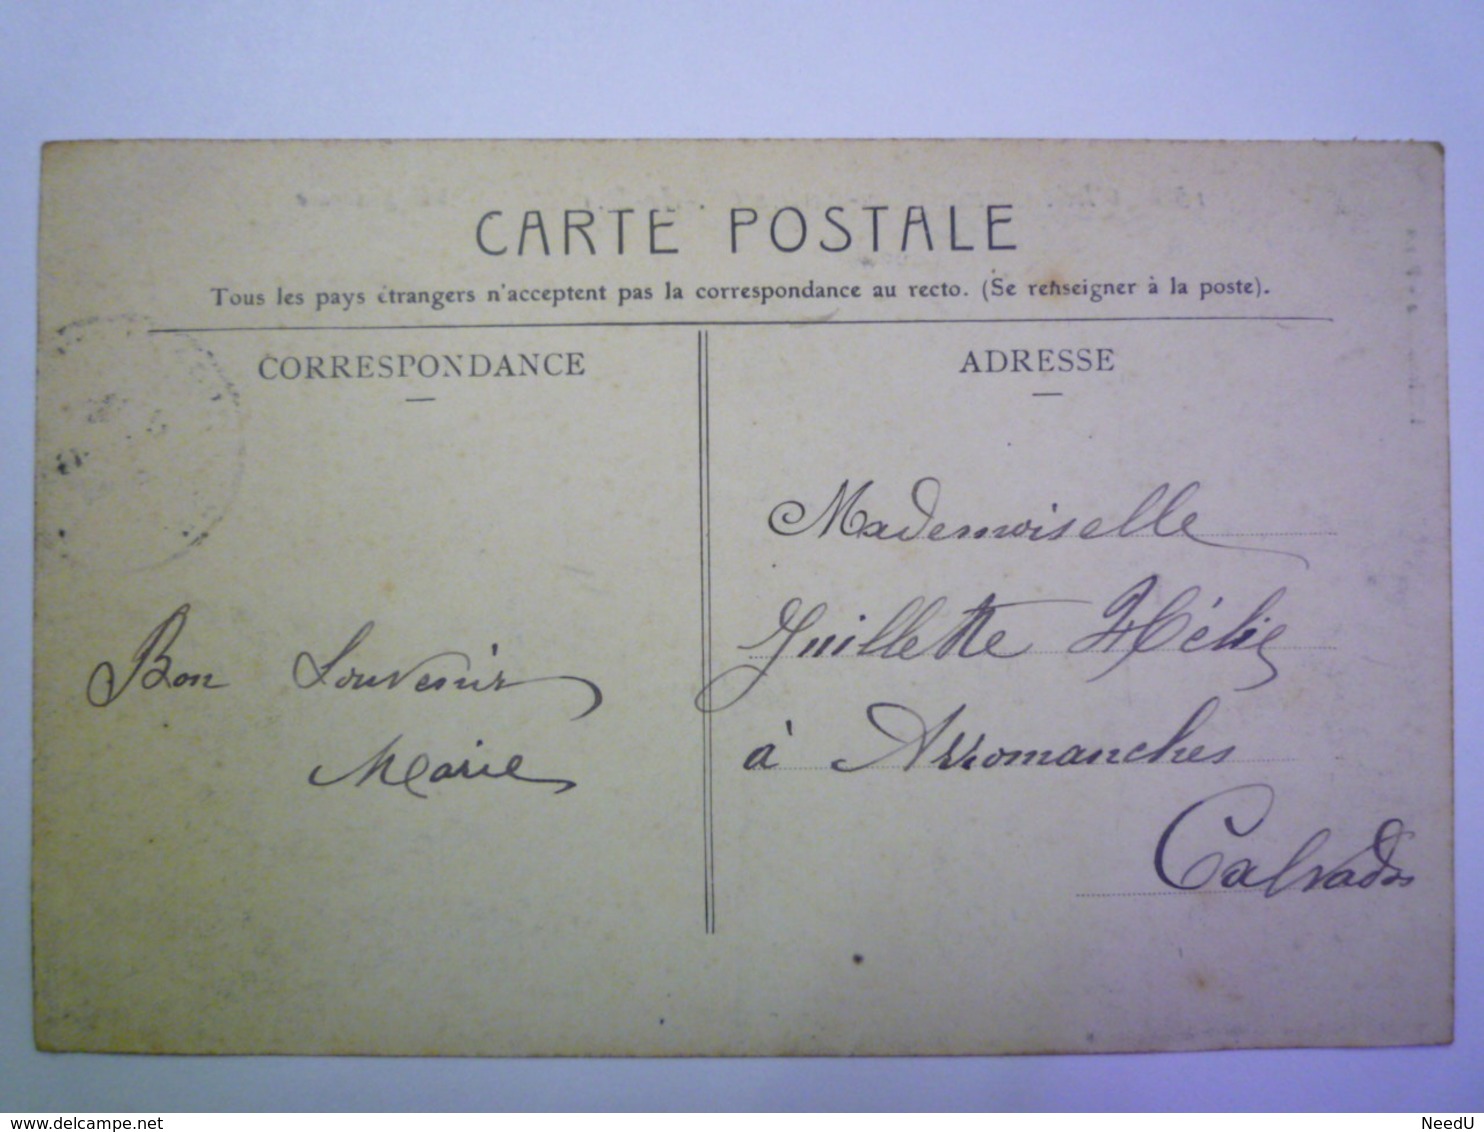 CARTE POSTALE
Tous les pays étrangers n'acceptent pas la correspondance au recto. (Se renseigner à la poste).
CORRESPONDANCE
ADRESSE
Bon Souvenir
Marie
Mademoiselle
Juillette Hélie
à Arromanches
Calvados
www.delcampe.net
NeedU